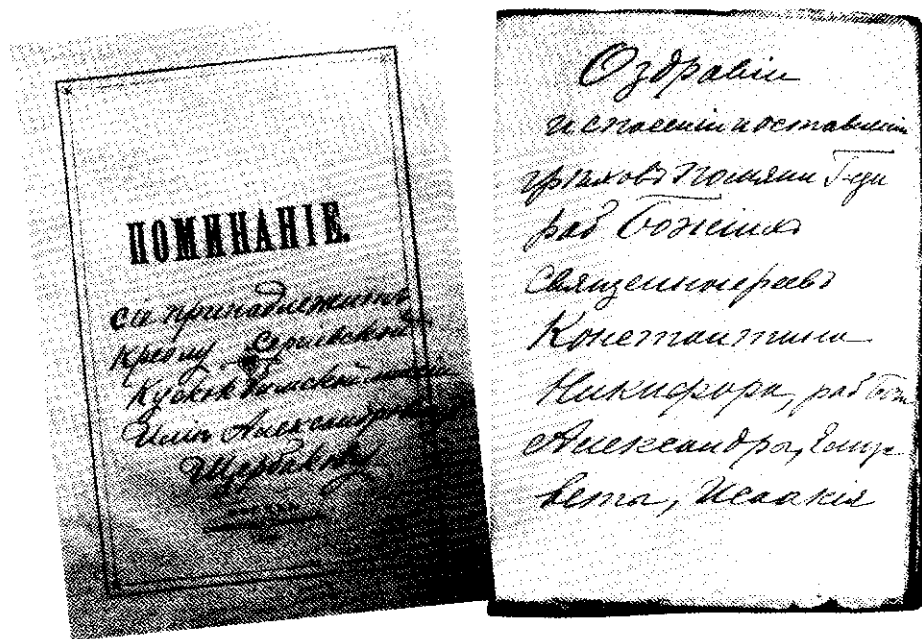 ПОМИНАНІЕ.
сіе принадлежитъ
Сергіевской
Александровичу
Щербакову
О здравіи
и спасеніи и оставленіи
грѣховъ помяни Г-ди
раб Божіихъ
священноіереевъ
Константина
Никифора, раб Бож
Александры, Елиса
веты, Исаакія